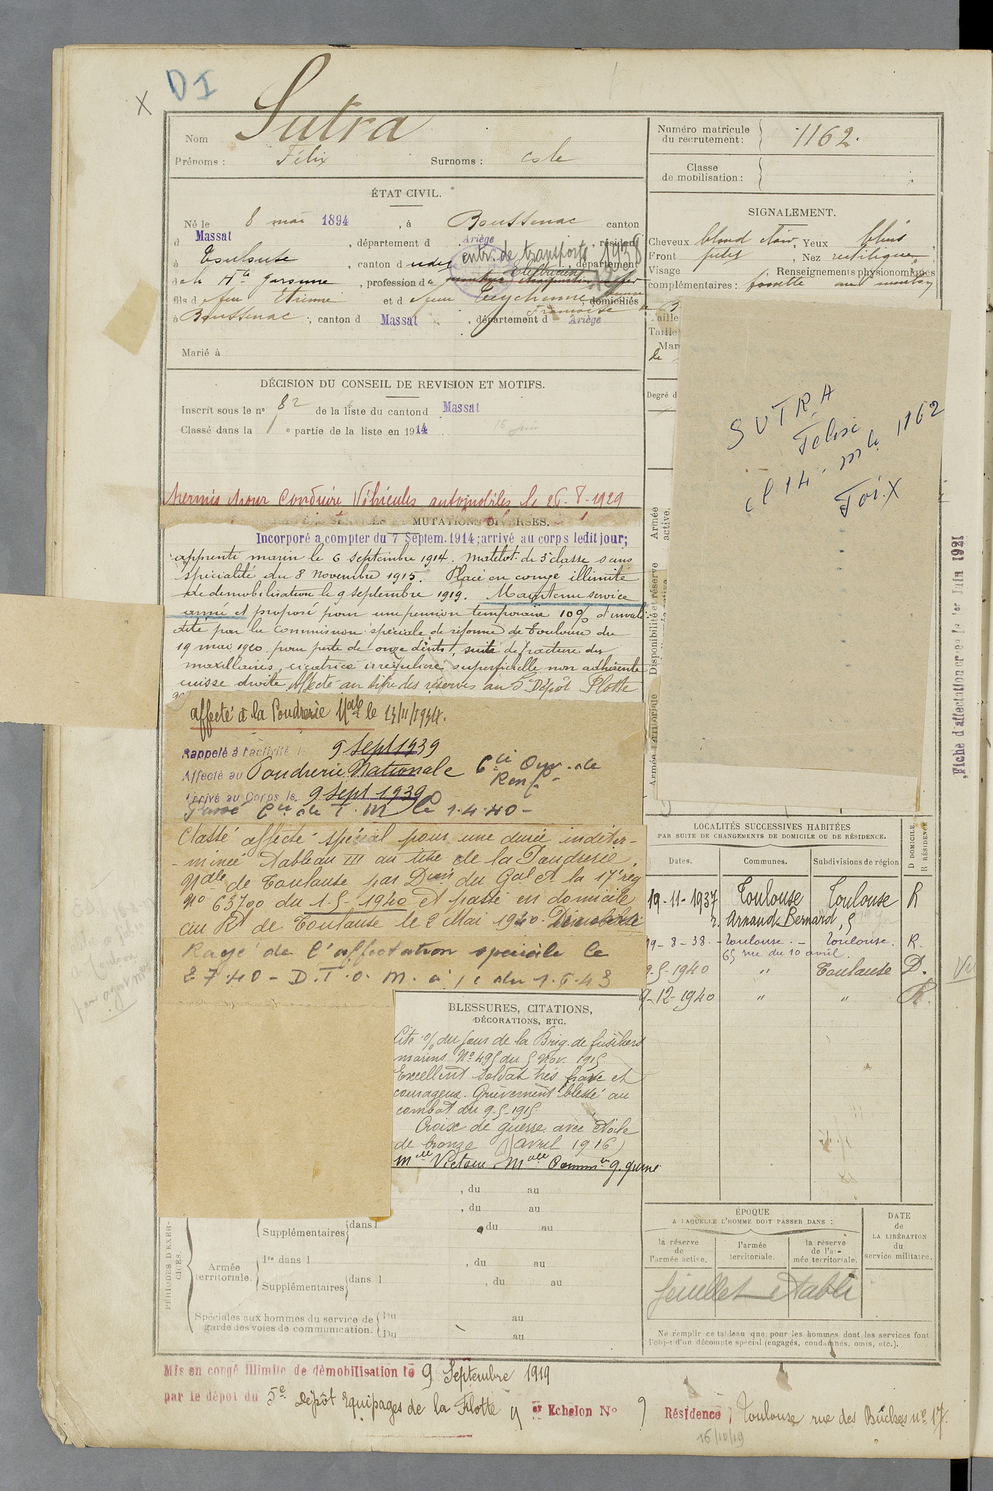 DI
X
Nom Sutra
Prénoms : Félix Surnoms :
Numéro matricule du recrutement : 1162.
Classe de mobilisation :
ÉTAT CIVIL.
Né le 8 mai 1894, à Boussenac canton
d Massat, département d Ariège, résidant
à Toulouse, canton d udet entr. de transports 1938 département
de la Hte Garonne, profession de électricien
fils d feu Etienne et d feu Eychenne Françoise domiciliés
à Boussenac, canton d Massat, département d Ariège
Marié à
SIGNALEMENT.
Cheveux blond clair, Yeux bleus
Front petit, Nez rectiligne
Visage Renseignements physionomiques
complémentaires : fossette au menton
Taille
Taille
Degré d
SUTRA
Félix
cl 14 - mle 1162
Foix
DÉCISION DU CONSEIL DE REVISION ET MOTIFS.
Inscrit sous le n° 82 de la liste du canton d Massat
Classé dans la 1 e partie de la liste en 1914
Permis pour Conduire Véhicules automobiles le 26-8-1929
MUTATIONS DIVERSES.
Incorporé a compter du 7 Septem. 1914; arrivé au corps ledit jour;
apprenti marin le 6 Septembre 1914. Matelot de 3e classe sans
spécialité du 8 Novembre 1915. Placé en congé illimité
de démobilisation le 9 septembre 1919. Maintenu service
armé et proposé pour une pension temporaire 10% d'invali-
dité par la Commission spéciale de réforme de Toulouse du
19 mai 1920 pour perte de onze dents, suite de fracture des
maxillaires, cicatrice irrégulière, superficielle non adhérente
cuisse droite, affecté au titre des réserves au 5e Dépôt Flotte
affecté à la Poudrerie Nale le 13/11/1934.
Rappelé à l'activité le 9 Sept 1939
Affecté au Poudrerie Nationale 6e Cie Ouv. de Renf.
Arrivé au Corps le 9 Sept 1939
Passé Cie de T. M. le 1.4.40 -
Classé affecté spécial pour une durée indéter-
-minée Tableau III au titre de la Poudrerie
Nale de Toulouse par Don du Gal Ct la 17e reg
No 63700 du 1-5-1940 et passé en domicile
au Rt de Toulouse le 2 Mai 1940.
Rayé de l'affectation spéciale le
2 7 40 - D. T. O. M. à jc du 1.6.43
Armée active.
Disponibilité et réserve
Armée territoriale
Fiche d'affectation créée le 1er Juin 1921
LOCALITÉS SUCCESSIVES HABITÉES
PAR SUITE DE CHANGEMENTS DE DOMICILE OU DE RÉSIDENCE.
D DOMICILE
R RÉSIDENCE
Dates. Communes. Subdivisions de région
19-11-1937 Toulouse Toulouse R
r. Arnaud Bernard, 5
19-8-38. - Toulouse. - Toulouse. R.
65 rue du 10 avril.
2.5-1940 " Toulouse D.
9-12-1940 " " R.
BLESSURES, CITATIONS,
DÉCORATIONS, ETC.
Cité o/ du jour de la Brig. de fusiliers
marins No 495 du 5 Nov. 1915
Excellent soldat très brave et
courageux. Grièvement blessé au
combat du 9-5-1915
Croix de guerre avec étoile
de bronze (avril 1916)
Mlle Victoire, Mlle Commve g. guerre
, du au
, du au
Supplémentaires dans l du au
PÉRIODES D'EXERCICES.
Armée territoriale.
1re dans l , du au
Supplémentaires dans l , du au
Spéciales aux hommes du service de garde des voies de communication. Du au
Du au
ÉPOQUE
A LAQUELLE L'HOMME DOIT PASSER DANS :
la réserve de l'armée active.
l'armée territoriale.
la réserve de l'armée territoriale.
DATE de LA LIBÉRATION du service militaire.
feuillet établi
Ne remplir ce tableau que pour les hommes dont les services font
l'objet d'un décompte spécial (engagés, condamnés, omis, etc.).
Mis en congé illimité de démobilisation le 9 Septembre 1919
par le dépôt du 5e Dépôt Equipages de la Flotte 9 e Echelon No 9 Résidence : Toulouse rue des Bûches no 17.
16/10/19